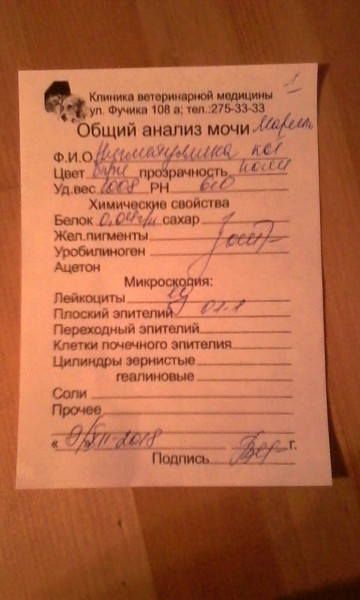 1
Клиника ветеринарной медицины
ул. Фучика 108 а; тел.:275-33-33
Общий анализ мочи
Ф.И.О. кот
Цвет прозрачность полн
Уд.вес 1008 РН 6.0
Химические свойства
Белок сахар
Жел.пигменты
Уробилиноген
Ацетон
Микроскопия:
Лейкоциты
Плоский эпителий 0-1-1
Переходный эпителий
Клетки почечного эпителия
Цилиндры зернистые
геалиновые
Соли
Прочее
« 9/XII-2018 г.
Подпись